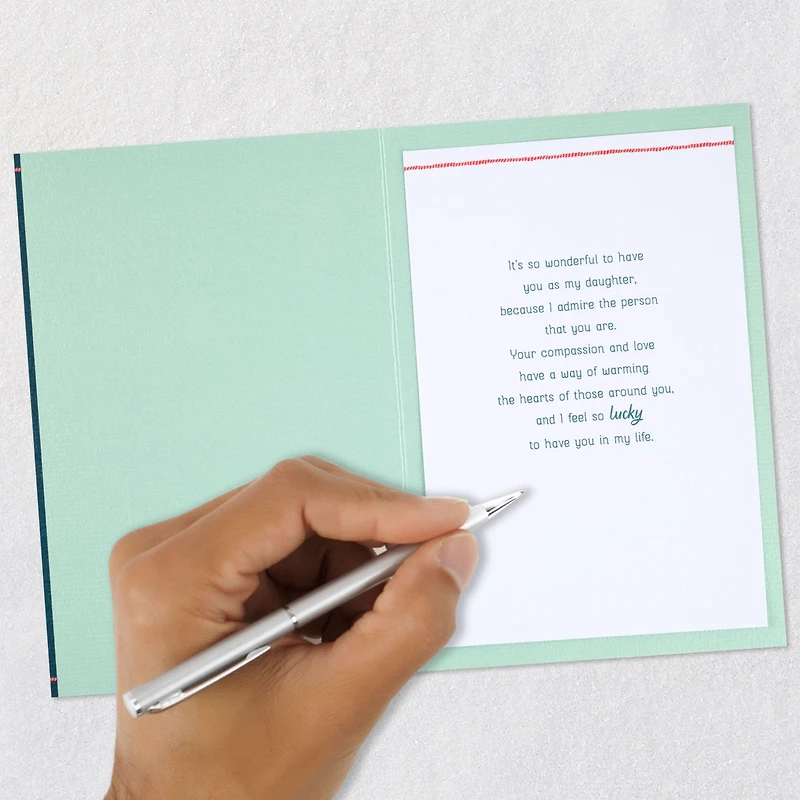 It's so wonderful to have
you as my daughter,
because I admire the person
that you are.
Your compassion and love
have a way of warming
the hearts of those around you,
and I feel so lucky
to have you in my life.